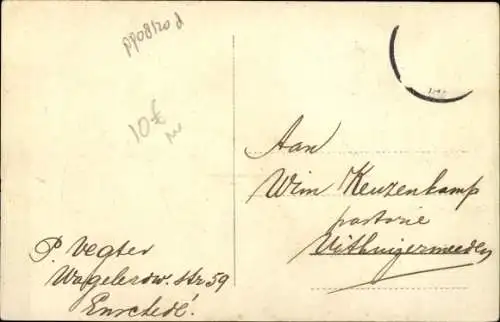 pp08120d
10£
Aan
Wim Keuzenkamp
pastorie
Uithuizermeeden
P. Vegter
Wagelerow. str 59
Enschede!